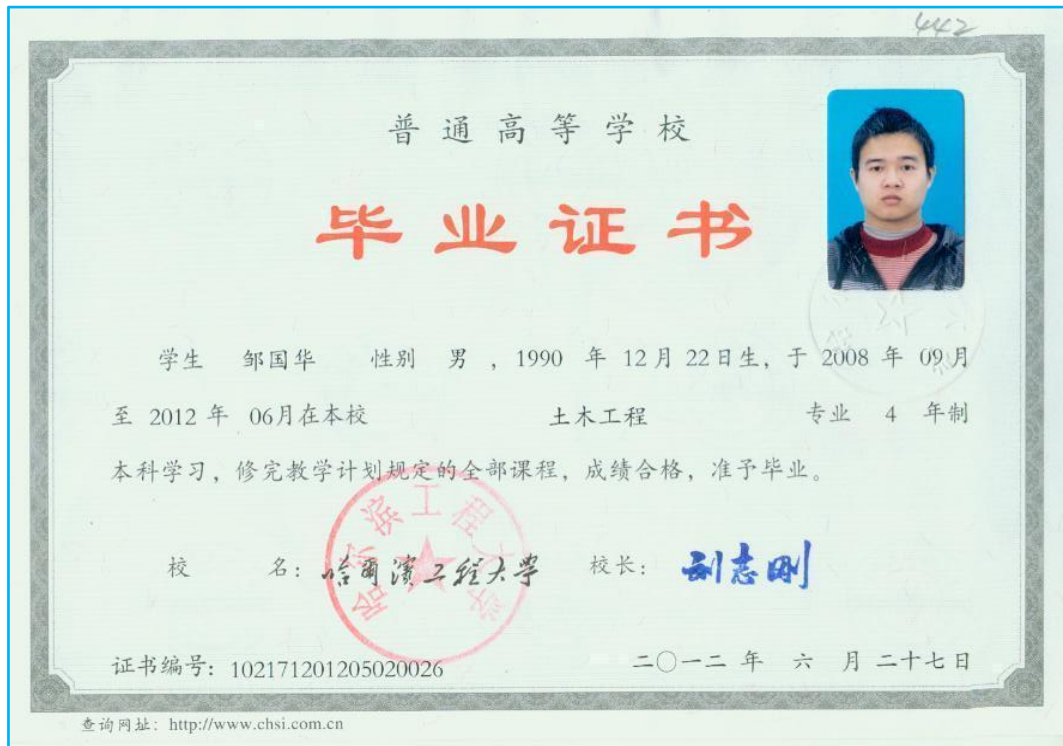 442
普通高等学校
毕业证书
学生 邹国华 性别 男 , 1990 年 12月 22日生, 于 2008 年 09月
至 2012 年 06月在本校 土木工程 专业 4 年制
本科学习, 修完教学计划规定的全部课程, 成绩合格, 准予毕业。
哈尔滨工程大学
校 名: 哈爾濱工程大學 校长: 刘志刚
证书编号: 102171201205020026 二〇一二 年 六 月 二十七日
查询网址: http://www.chsi.com.cn